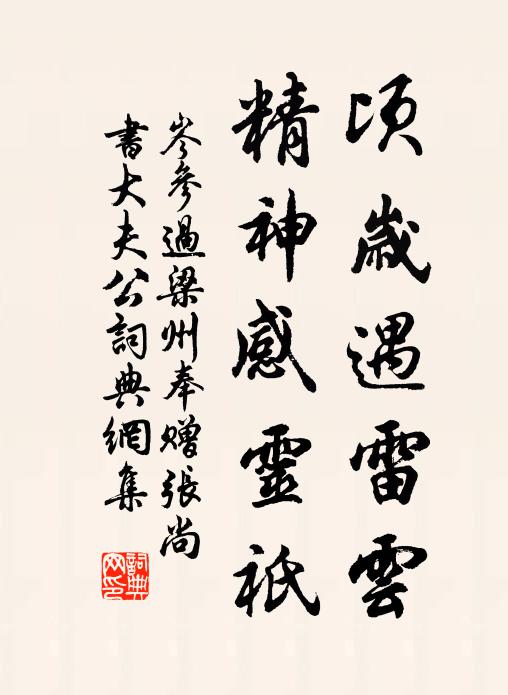 頃歲遇雷雲
精神感靈祇
岑參過梁州奉贈張尚
書大夫公詞典網集
詞典網印